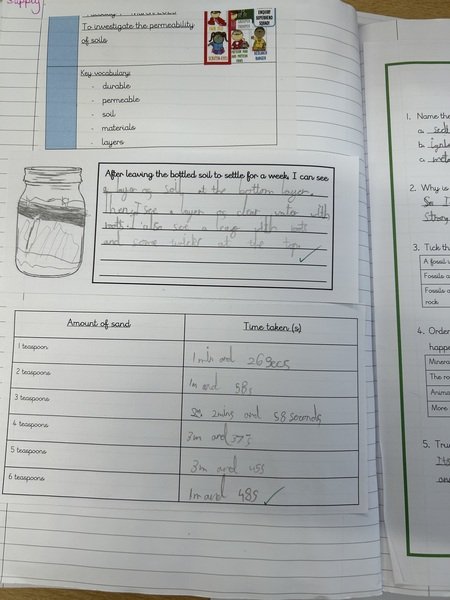 Supply
To investigate the permeability
of soils
Key vocabulary:
- durable
- permeable
- soil
- materials
- layers
ENQUIRY
SUPERHERO
SQUAD!
After leaving the bottled soil to settle for a week, I can see
a layer of soil at the bottom layer.
Then I see a layer of clear water with
roots. I also see a leaf with roots
and some water at the top.
Amount of sand
Time taken (s)
1 teaspoon
1min and 26secs
2 teaspoons
1m and 58s
3 teaspoons
2mins and 58seconds
4 teaspoons
3m and 37s
5 teaspoons
3m and 45s
6 teaspoons
1m and 48s
1. Name the
a.
b.
c.
2. Why is
So I
Strong
3. Tick th
A fossil i
Fossils a
Fossils a
rock
4. Order
happe
Minera
The ro
Anima
More
5. Tru